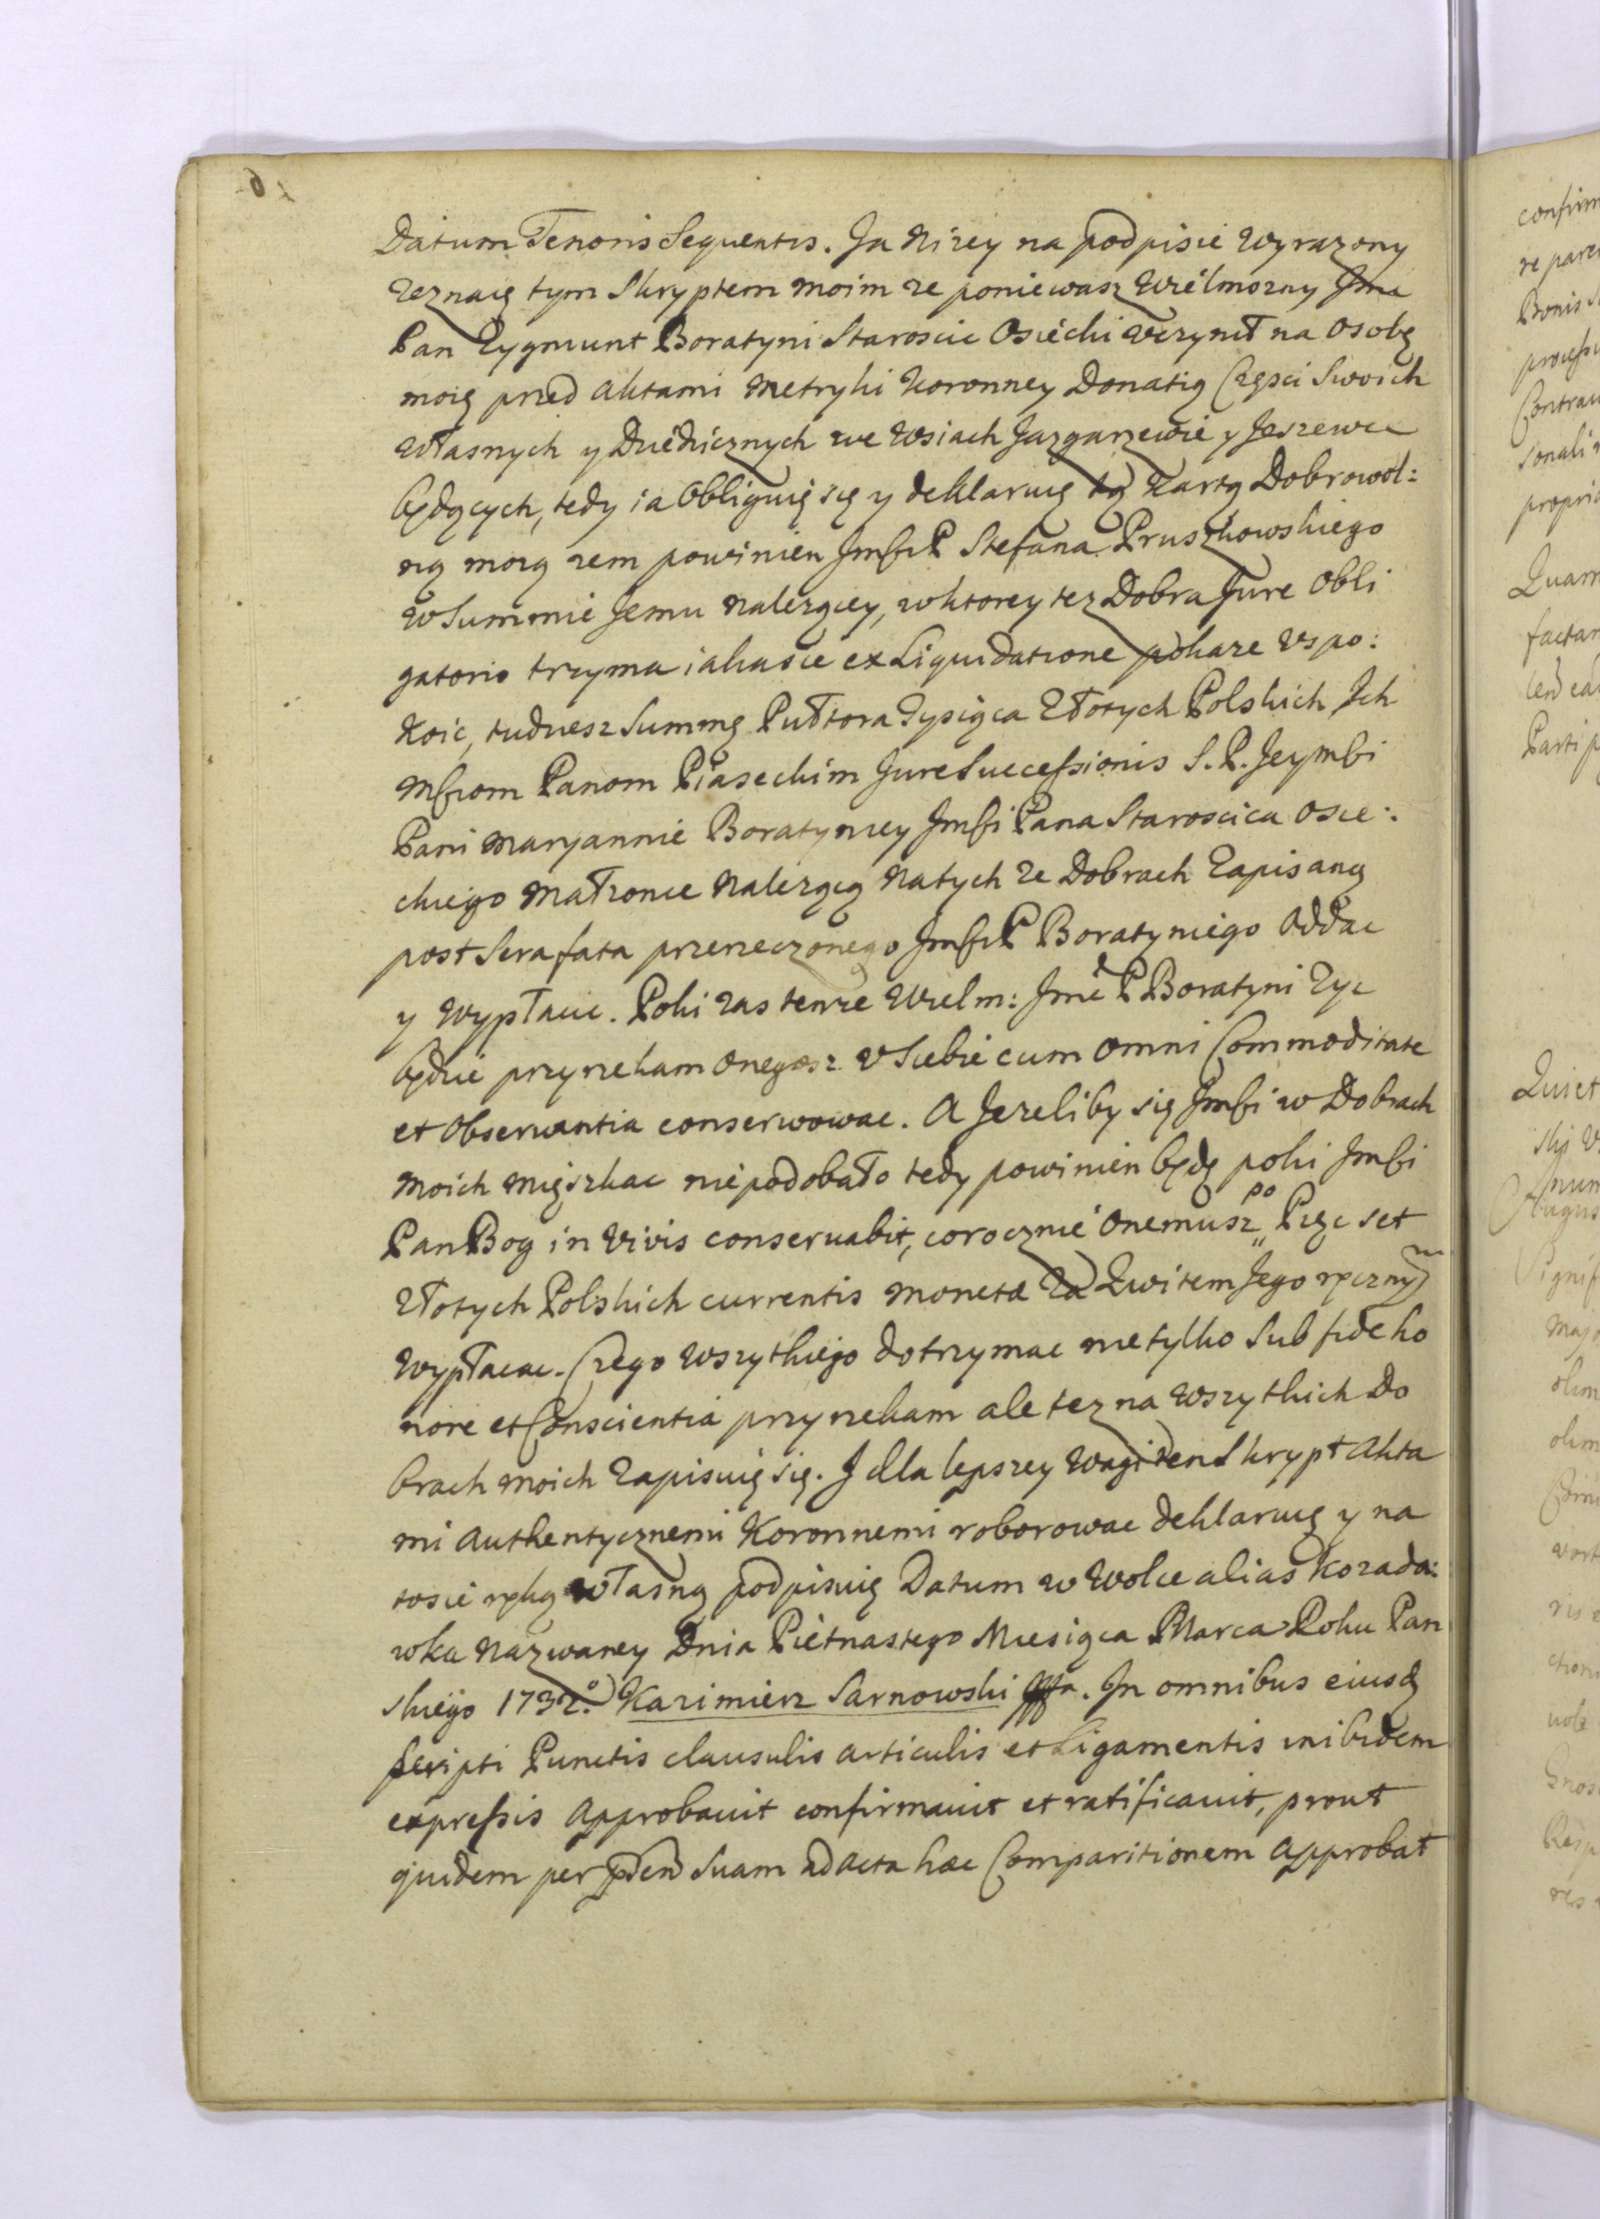 6
Datum Tenoris Sequentis. Ja Nizey na podpisie Wyrazony
Zeznaię tym Skryptem moim ze poniewasz Wielmozny Jmc
Pan Zygmunt Boratyni Staroscic Osiecki vczynił na Osobę
moię przed Aktami Metryki Koronney Donatią Częsci Swoich
Własnych y Dziedzicznych we Wsiach Jazgarzewie y Jeszewce
będących, tedy ia Obliguię się y deklaruię tą Kartą Dobrowol:
ną moią zem powinien JmściP Stefana Pruszkowskiego
w Summie Jemu Nalezącey, w ktorey tez Dobra Jure Obli
gatorio trzyma iakasie ex Liquidatione pokaze Vspo:
Koic, tudziesz Summę Pułtora Tysiąca Złotych Polskich Ich
Mściom Panom Piaseckim Jure Successionis S. P. Jeymści
Pani Maryannie Boratyniey Jmści Pana Staroscica Osie:
ckiego Małzonce Nalezącą Natych ze Dobrach Zapisaną
post Sera fata przerzeczonego JmściP Boratyniego Oddac
y Wypłacic. Poki zas tenze Wielm: Jmć P Boratyni Zyc
będzie przyrzekam Onegosz v Siebie cum Omni Commoditate
et Observantia conserwowac. A Jezeliby się Jmści w Dobrach
Moich Mięszkac niepodobało tedy powinien będę poki Jmści
Pan Bog in Vivis conservabit, corocznie Onemusz po Pięc set
Złotych Polskich currentis Monetæ Za Kwitem Jego ręcznym
Wypłacac. Czego Wszytkiego dotrzymac nietylko Sub fide ho
nore et Conscientia przyrzekam ale tez na Wszytkich Do
brach Moich Zapisuię się. J dla lepszey Wagi ten Skrypt Akta
mi Authentycznemi Koronnemi roborowac deklaruię y na
tosie ręką własną podpisuię Datum w Wolce alias Kozado:
wka Nazwaney Dnia Pietnastego Miesiąca Marca Roku Pan
skiego 1732.º Kazimierz Sarnowski . In omnibus eiusd
scripti Punctis clausulis articulis et Ligamentis inibidem
expressis Approbavit confirmavit et ratificavit, prout
quidem per pntem Suam ad Acta hæc Comparitionem Approbat